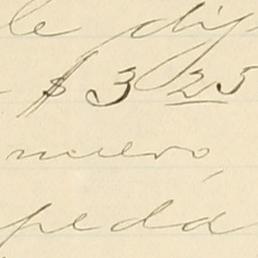 le dij
$ 3 25
nuevo,
peda